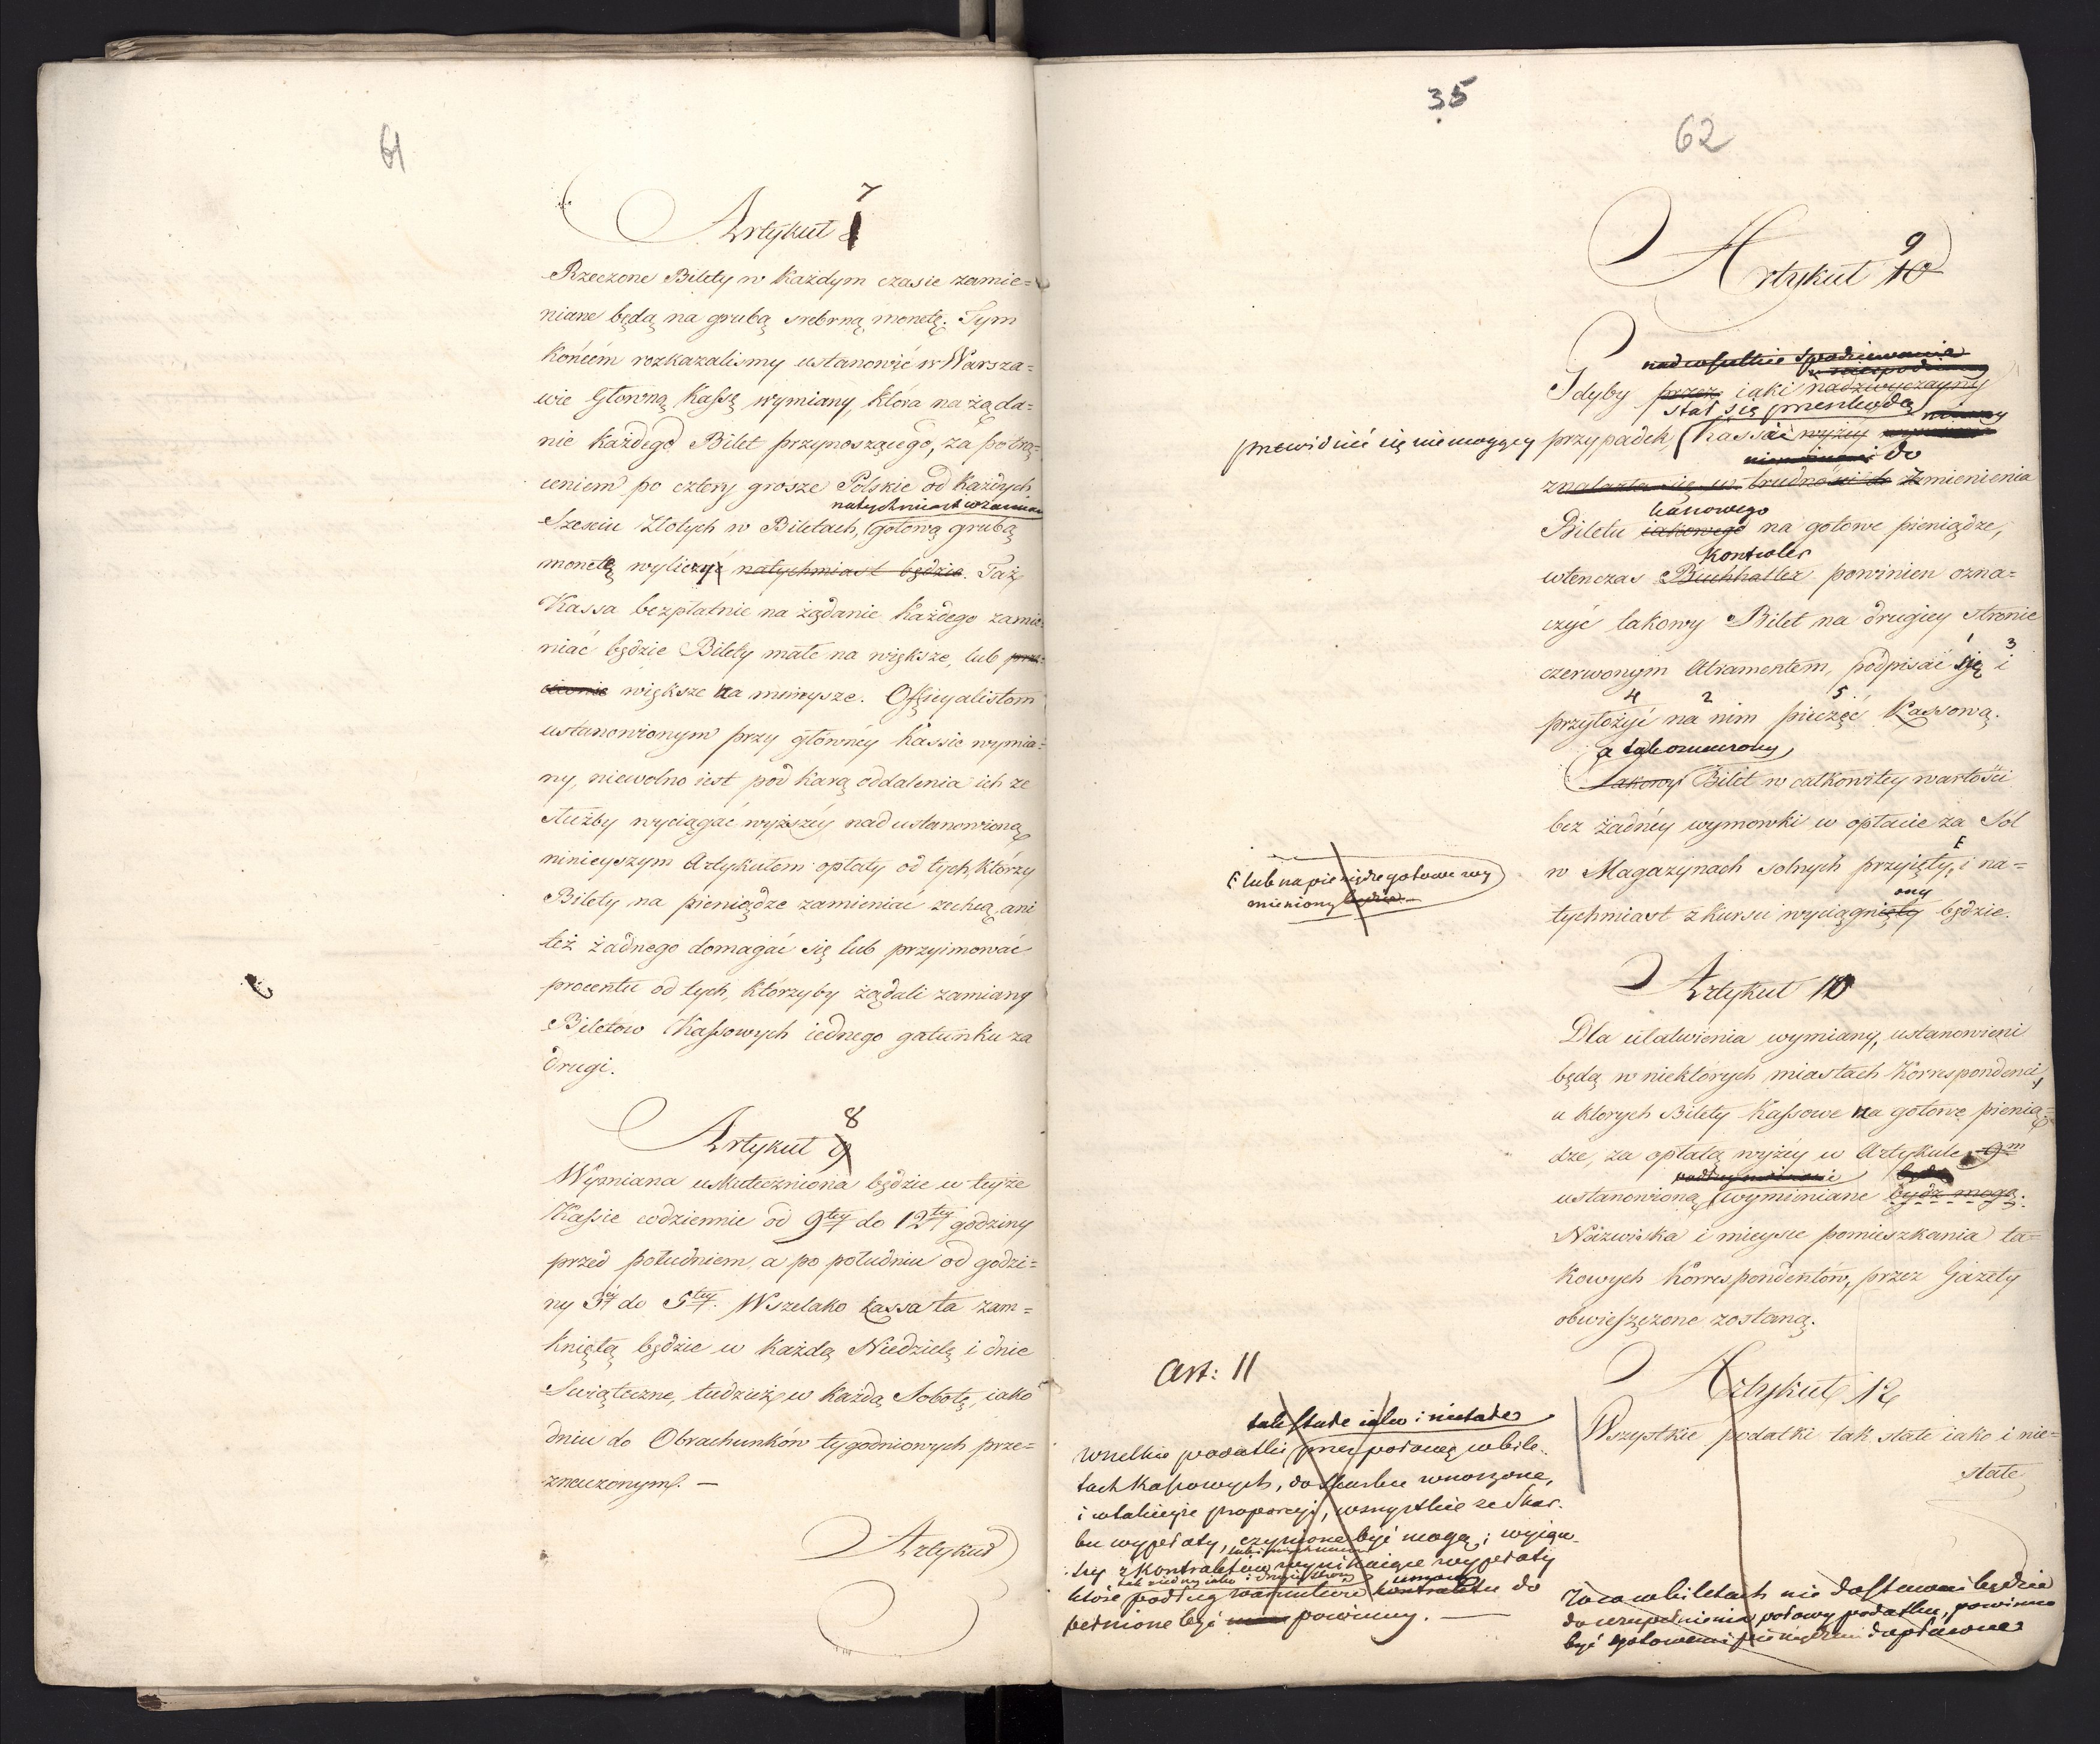 61
7
Artykuł
Rzeczone Bilety w każdym czasie zamie=
niane będą na grubą srebrną monetę. Tym
końcem rozkazalismy ustanowić w Warsza=
wie Główną Kassę wymiany, która na żąda=
nie każdego Bilet przynoszącego, za potrą=
ceniem po cztery grosze Polskie od każdych
natychmiast
Szesciu Złotych w Biletach, gotową grubą
monetę wyliczyć natychmiast będzie. Taż
Kassa bezpłatnie na żądanie każdego zamie=
niać będzie Bilety małe na większe, lub
większe na mnieysze. Officyalistom
ustanowionym przy główney kassie wymia=
ny, niewolno iest pod karą oddalenia ich ze
służby wyciągać wyższéy nad ustanowioną
ninieyszym Artykułem opłaty od tych, którzy
Bilety na pieniądze zamieniać zechcą, ani
też żadnego domagać się lub przyimować
procentu od tych, którzyby żądali zamiany
Biletów Kassowych iednego gatunku za
drugi.
8
Artykuł 9
Wymiana uskuteczniona będzie w teyże
Kassie codziennie od 9tey do 12tey godziny
przed południem, a po południu od godzi=
ny 3ey do 5tey. Wszelako kassa ta zam=
kniętą będzie w każdą Niedzielę i dnie
Swiąteczne, tudzież w każdą Sobotę, iako
dniu do Obrachunków tygodniowych prze=
znaczonym. —
Artykuł
35
62
9
Artykuł 10
nadwszelkie spodziewanie
Gdyby przez iaki nadzwyczayny
stał się przeszkodą
przewidzieć się niemogący przypadek, kassie wyżey
do
znalazła się w trudności do zmienienia
kassowego
Biletu iakowego na gotowe pieniądze,
Kontroler
wtenczas Buchhalter powinien ozna=
czyć takowy Bilet na drugiey stronie
1 3
czerwonym Atramentem, podpisać się i
4 2 5
przyłożyć na nim pieczęć Kassową.
a tak oznaczony
Takowy Bilet w całkowitey wartości
bez żadnéy wymówki w opłacie za Sól
w Magazynach solnych przyięty, i na=
lub na pieniądze gotowe wy
mieniony będzie
ony
tychmiast z kursu wyciągnięty będzie.
Artykuł 10
Dla ułatwienia wymiany, ustanowieni
będą w niektórych miastach Korrespondenci,
u ktorych Bilety Kassowe na gotowe pienią=
dze, za opłatą wyżéy w Artykule 9m
będą
ustanowioną wymieniane bydź mogą.
Nazwiska i mieysce pomieszkania ta=
kowych Korrespondentów, przez Gazety
obwieszczone zostaną.
Art: 11
tak stałe iako i niestałe
wszelkie podatki przez połowę w bile=
tach kassowych, do skarbu wnoszone,
i w takieyże proporcyi, wszystkie ze Skar=
bu wypłaty, czynione być mogą; wyią=
wszy z kontraktów wynikaiące wypłaty
które podług warunków kontraktu do
pełnione być powinny. —
Artykuł 12
Wszystkie podatki tak stałe iako i nie=
stałe
w biletach nie dostawać będzie
do uzupełnienia połowy podatku, powinno
być gotowemi pieniędzmi dopłacone